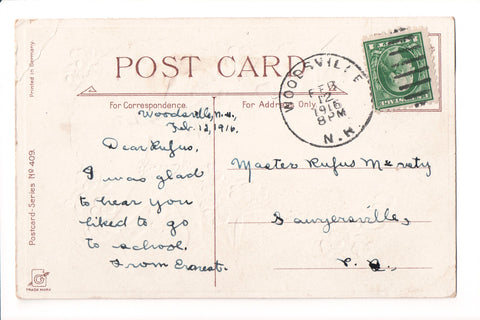 Printed in Germany.
Postcard-Series No 409.
TRADE MARK
POST CARD
For Correspondence.
For Address Only.
WOODSVILLE
FEB
12
1916
8 PM
N.H.
Woodsville, N.H.,
Feb. 12, 1916.
Dear Rufus,
I was glad
to hear you
liked to go
to school.
From Ernest.
Master Rufus
Sawyersville,
P. Q.,